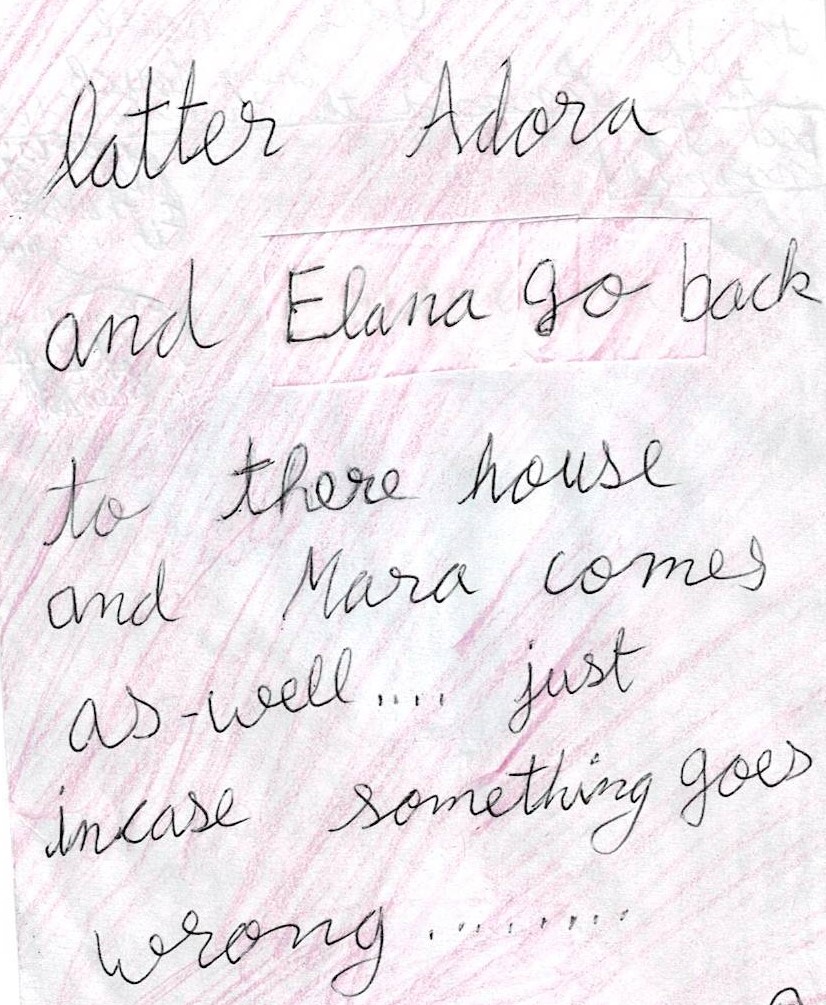 latter Adora
and Elana go back
to there house
and Mara comes
as-well.... just
incase something goes
wrong.........